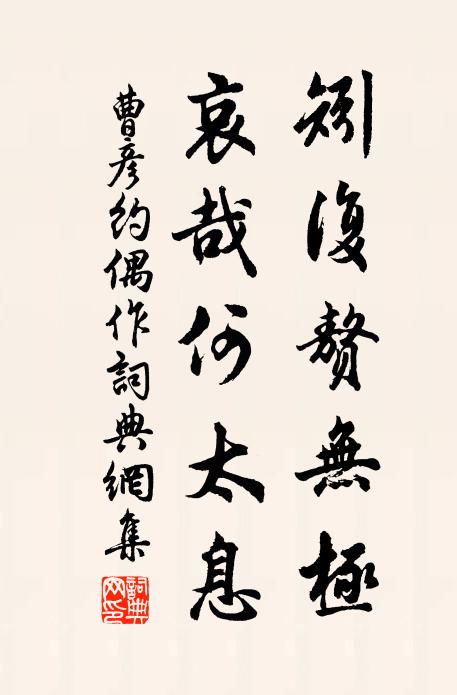 矧復贅無極
哀哉何太息
曹彦約偶作詞典網集
詞典網印